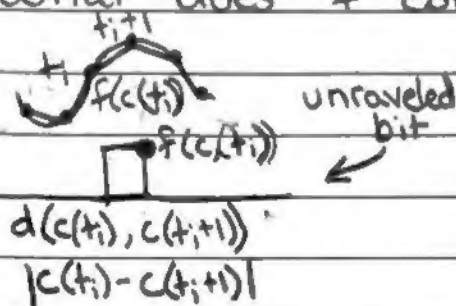 t_i+1
t_i
f(c(t_i))
unraveled
bit
f(c(t_i))
d(c(t_i), c(t_i+1))
|c(t_i)-c(t_i+1)|